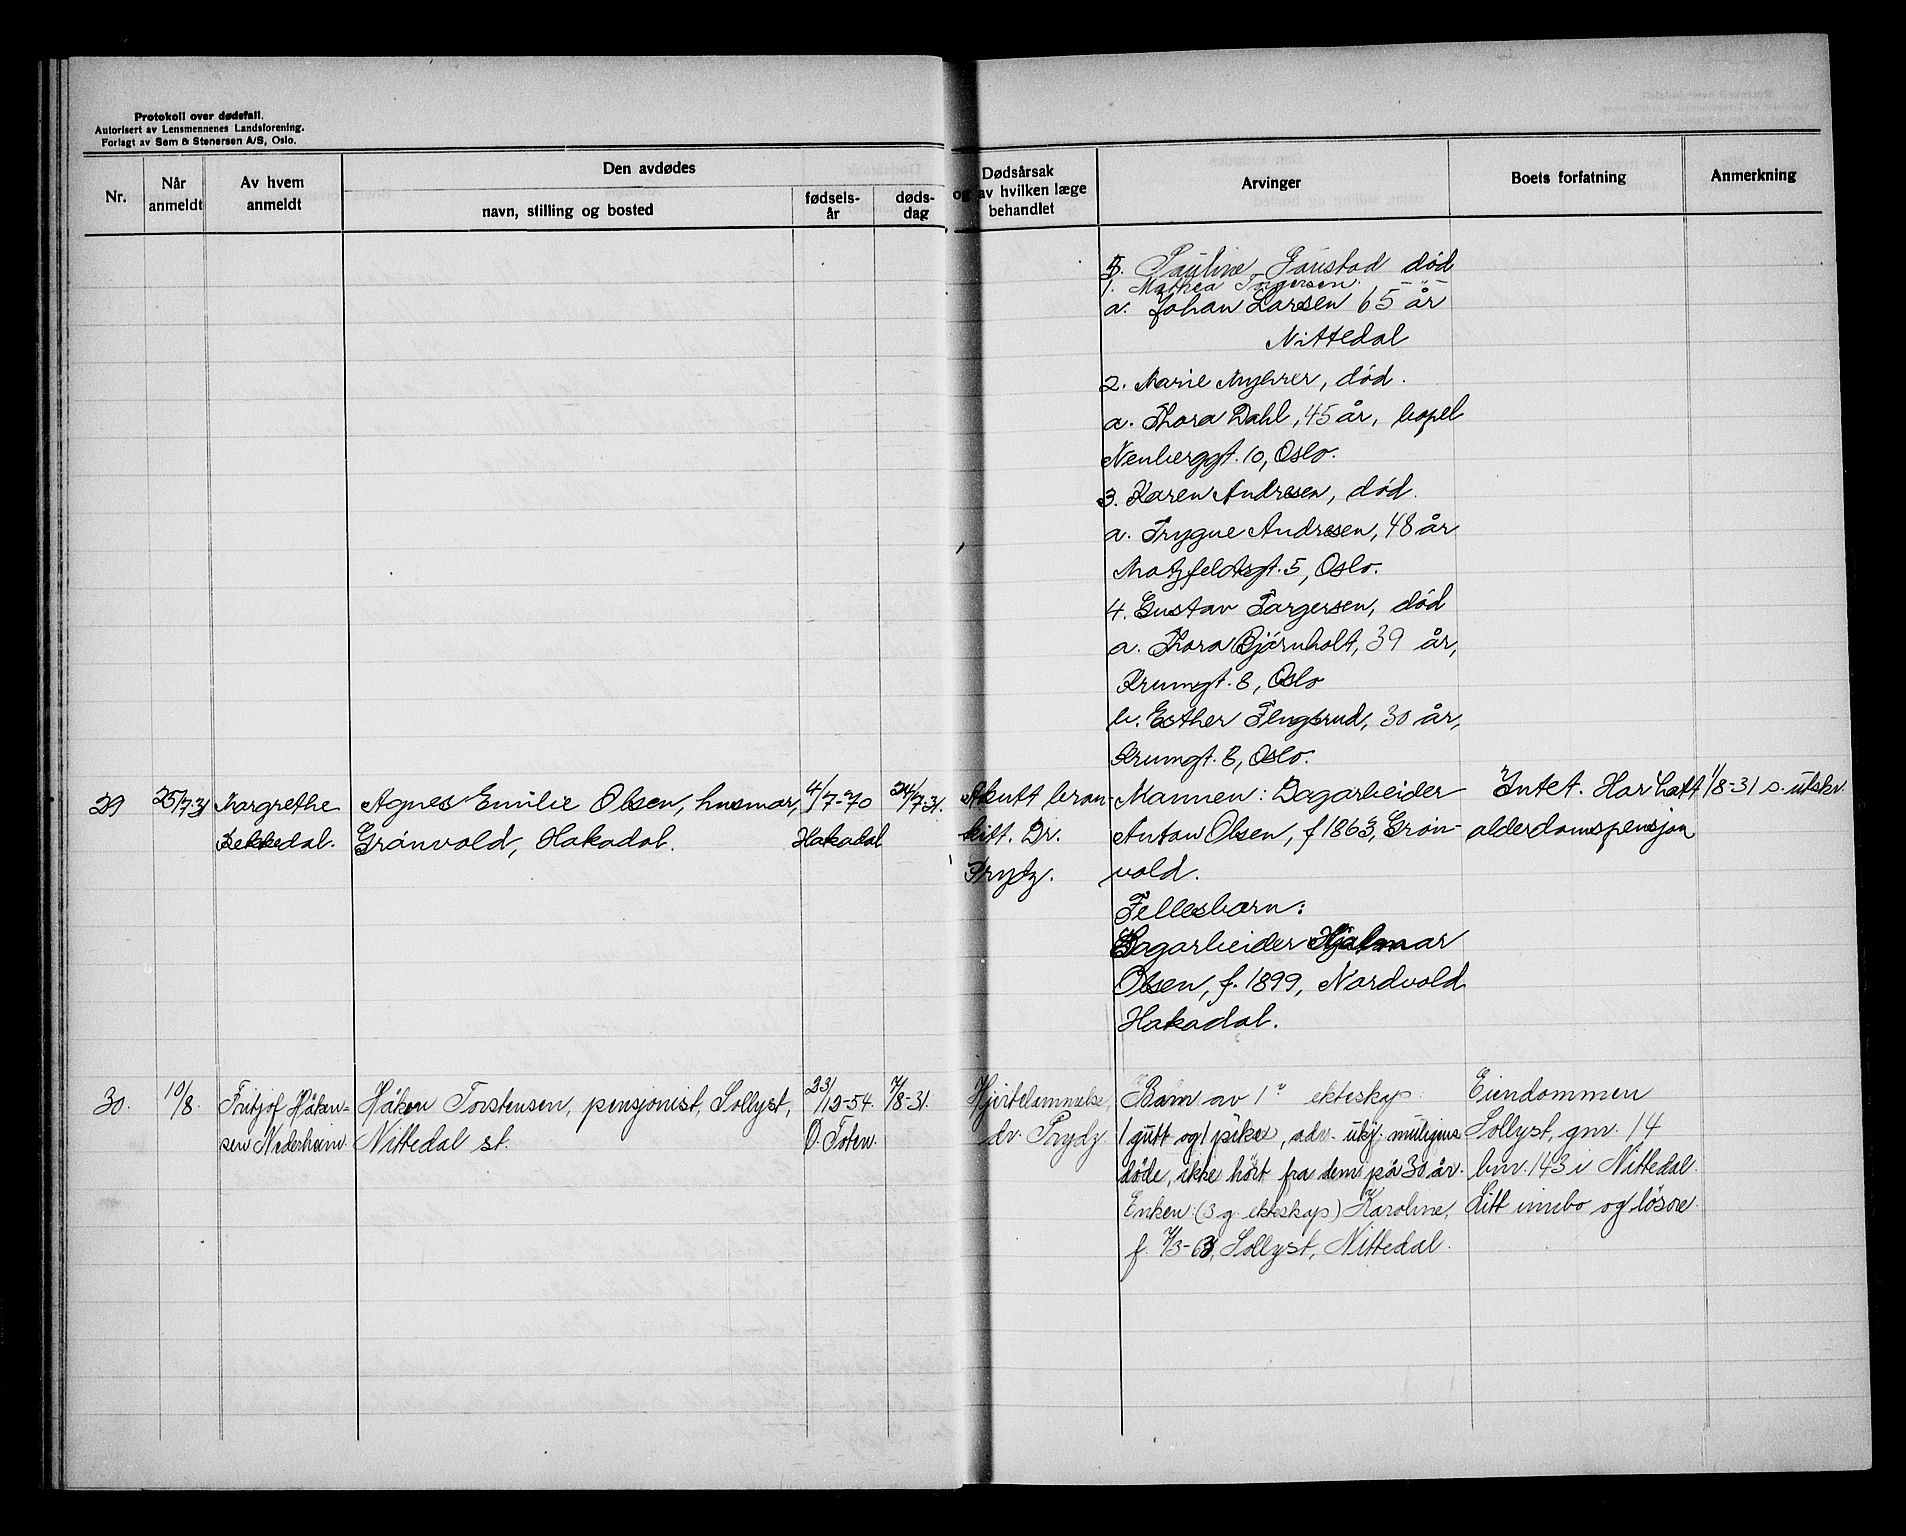 Protokoll over dødsfall.
Autorisert av Lensmennenes Landsforening.
Forlagt av Sem & Stenersen A/S, Oslo.
Nr.
Når
anmeldt
Av hvem
anmeldt
Den avdødes
navn, stilling og bosted
fødsels-
år
døds-
dag
Dødsårsak
og av hvilken læge
behandlet
Arvinger
Boets forfatning
Anmerkning
5. Pauline Faustad død
1. Mathea Torgersen -"-
a. Johan Larsen 65 år
Nittedal
2. Marie Myhrer, død.
a. Thora Dahl, 45 år, bopel
Nenberggt. 10, Oslo.
3. Karen Andresen, død.
a. Trygve Andresen, 48 år
Motzfeldtsgt. 5, Oslo.
4. Gustav Torgersen, død
a. Thora Bjørnholt, 39 år,
Krumgt. 8, Oslo
b. Esther Flugsrud, 30 år,
Krumgt. 8, Oslo.
29
25/7-31
Margrethe
Bekkedal.
Agnes Emilie Olsen, husmor,
Grønvold, Hakadal.
4/7-70
Hakadal
24/7-31.
Akutt bron-
kitt. Dr.
Prydz.
Mannen: Dagarbeider
Anton Olsen, f 1863, Grøn-
vold.
Fellesbarn:
Dagarbeider Hjalmar
Olsen, f. 1899, Nordvold
Hakadal.
Intet. Har hatt
alderdomspensjon
1/8-31 s. utskr.
30.
10/8.
Fritjof Håken-
sen Nederheim
Håken Torstensen, pensjonist, Sollyst,
Nittedal st.
23/12-54.
Ø. Toten.
7/8-31.
Hjertelammelse,
dr. Prydz
Barn av 1ste ekteskap:
1 gutt og 1 pike, adr. ukj. muligens
døde, ikke hørt fra dem på 30 år.
Enken: (3 g. ekteskap) Karoline,
f. 7/3-63, Sollyst, Nittedal.
Eiendommen
Sollyst, gnr. 14
bnr. 143 i Nittedal.
Litt innbo og løsøre.